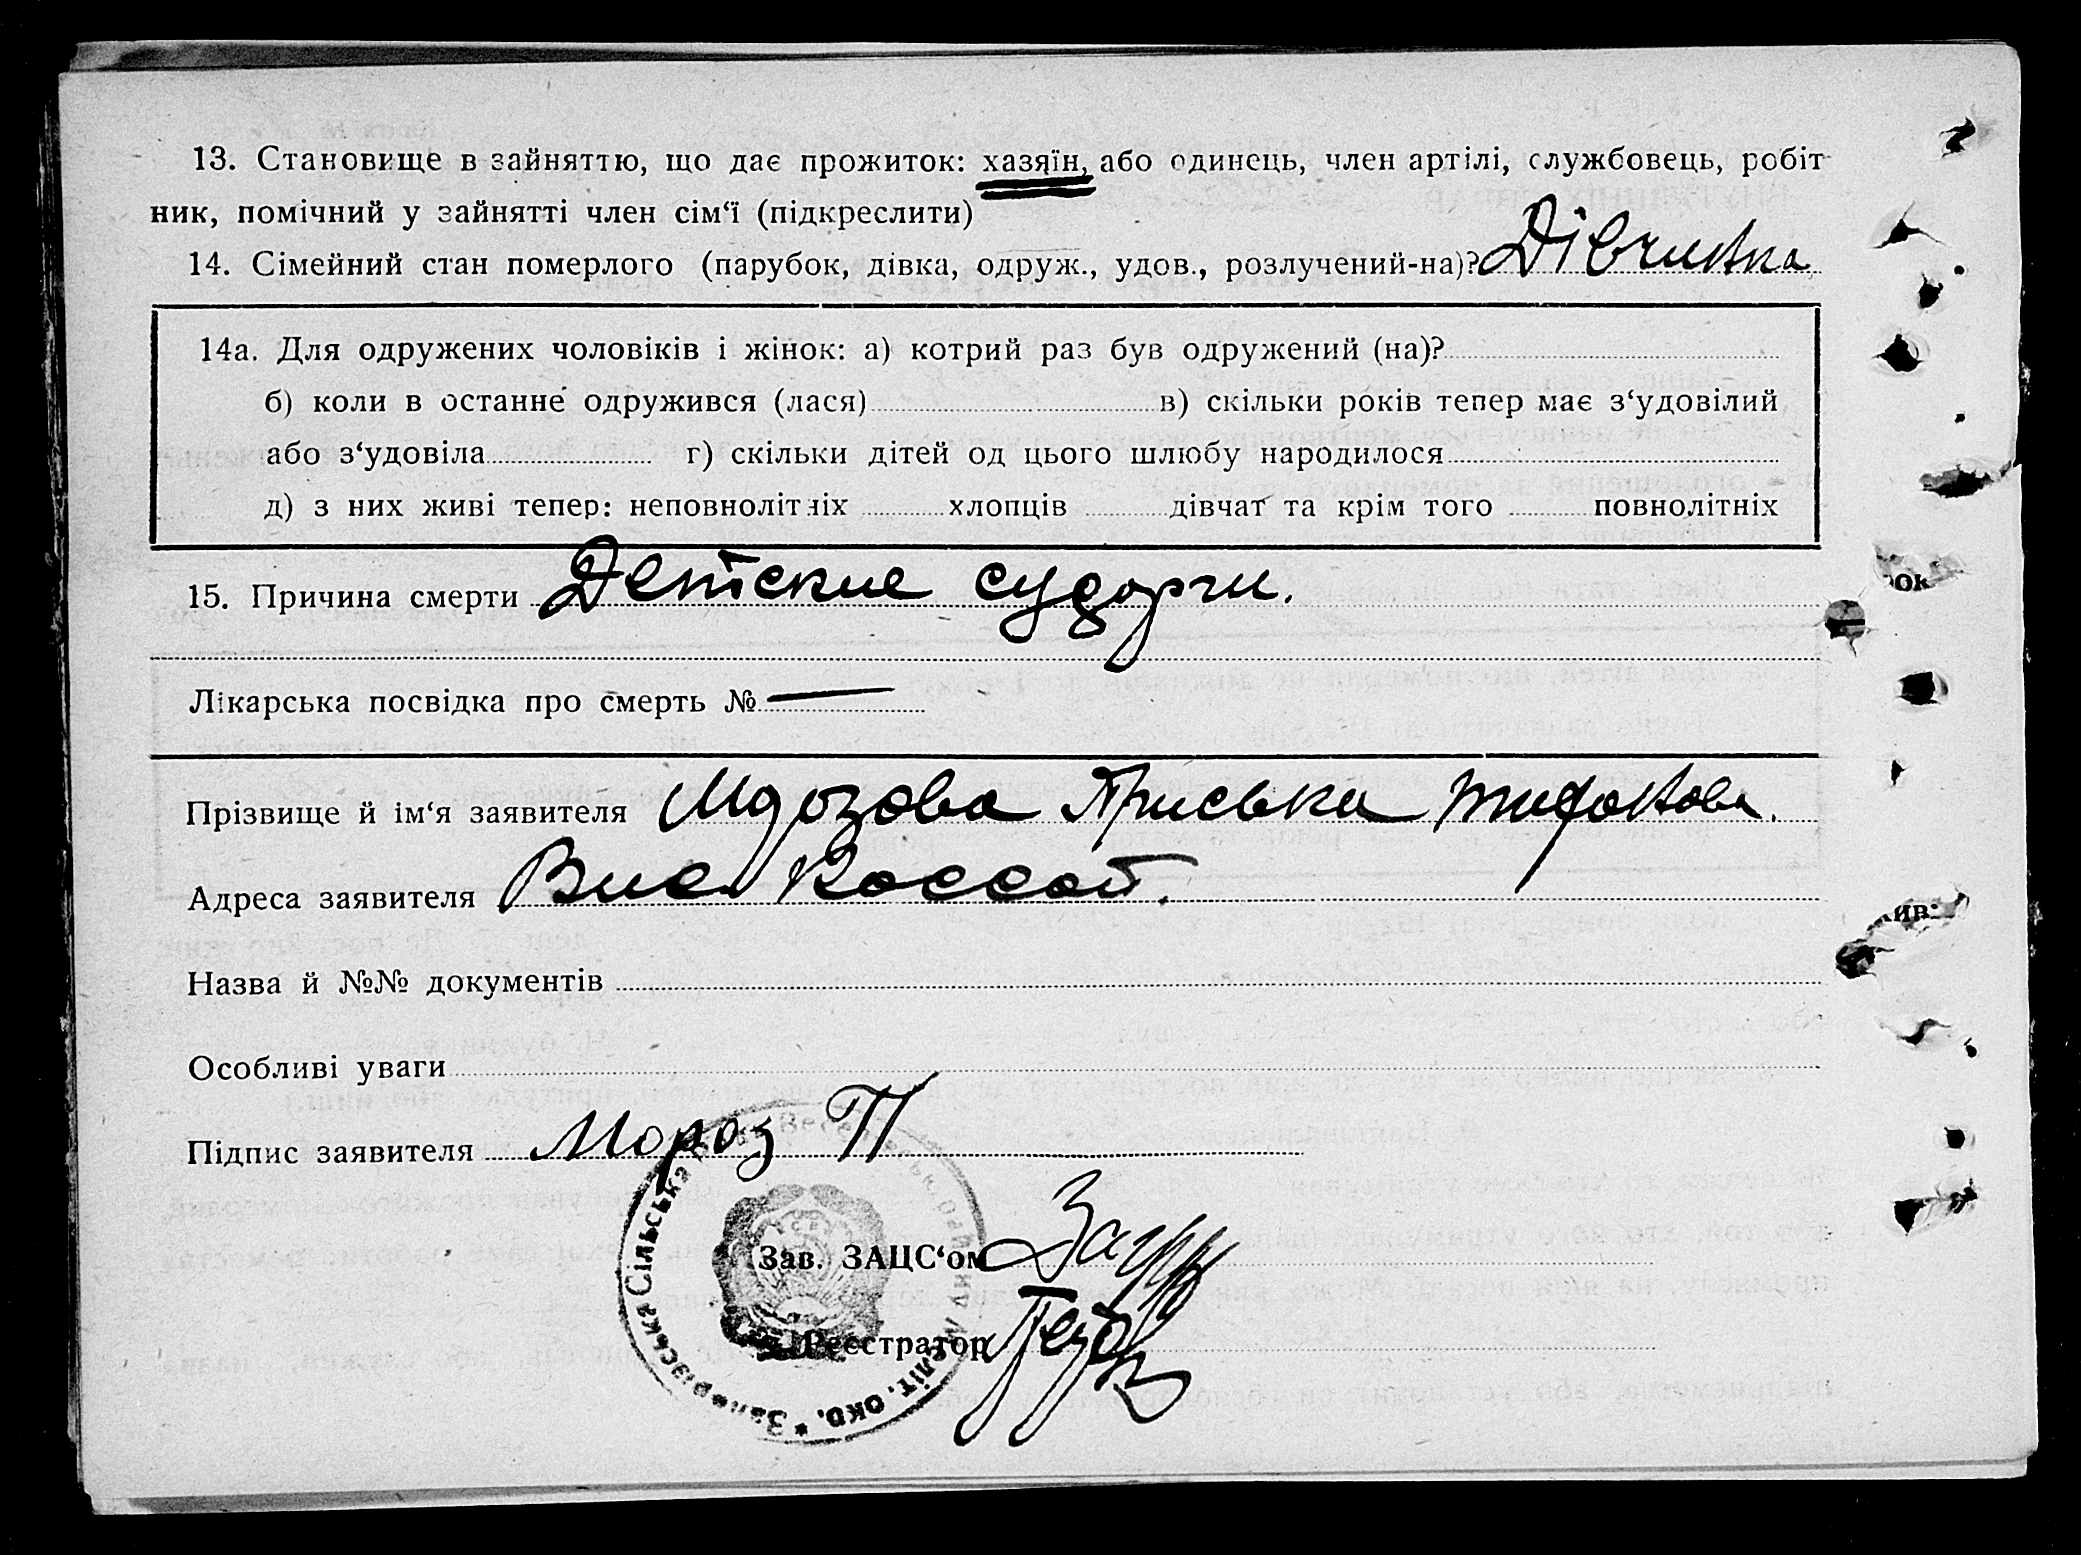 13. Становище в зайняттю, що дає прожиток: хазяїн, або одинець, член артілі, службовець, робіт
ник, помічний у зайнятті член сім‘ї (підкреслити)
14. Сімейний стан померлого (парубок, дівка, одруж., удов., розлучений-на)? Дівчинка
14а. Для одружених чоловіків і жінок: а) котрий раз був одружений (на)?
б) коли в останнє одружився (лася) в) скільки років тепер має з‘удовілий
або з‘удовіла г) скільки дітей од цього шлюбу народилося
д) з них живі тепер: неповнолітніх хлопців дівчат та крім того повнолітніх
15. Причина смерти Детские судорги.
Лікарська посвідка про смерть № —
Прізвище й ім‘я заявителя Мдозова Приська
Адреса заявителя
Назва й №№ документів
Особливі уваги
Підпис заявителя Мороз П
Зав. ЗАЦС‘ом
Реєстратор
Сільська
Меліт. окр. * Запорізська
рок
жив: